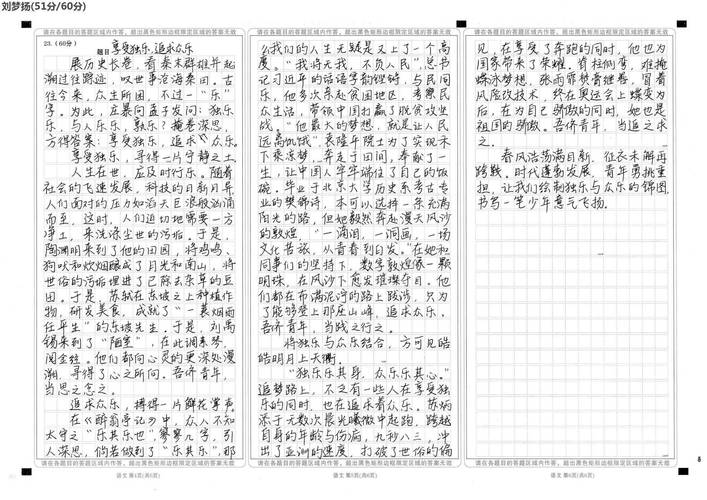 刘梦扬(51分/60分)
请在各题目的答题区域内作答，超出黑色矩形边框限定区域的答案无效
23.(60分)
题目 享受独乐，追求众乐
展历史长卷，看秦木群雄并起
溯过往踪迹，叹世事沧海桑田。古
往今来，众生所困，不过一“乐”
字。为此，庄暴问孟子发问：独乐
乐，与人乐乐，孰乐？掩卷深思，
方得答案：享受独乐，追求众乐
享受独乐，寻得一片宁静之土
人生在世，应及时行乐。随着
社会的飞速发展，科技的日新月异
人们面对的压力如滔天巨浪般汹涌
而至，这时，人们迫切地需要一方
净土，来洗涤尘世的污垢。于是，
陶渊明来到了他的田园，将鸡鸣、
狗吠和炊烟酿成了月光和南山，将
世俗的污垢埋进了已除去杂草的豆
田。于是，苏轼在东坡之上种植作
物，研发美食，成就了“一蓑烟雨
任平生”的东坡先生。于是，刘禹
锡来到了“陋室”，在此调素琴，
阅金经。他们都向心灵的更深处漫
溯，寻得了心之所问。吾侪青年，
当思之念之。
追求众乐，搏得一片鲜花掌声
在《醉翁亭记》中，众人不知
太守之“乐其乐也”，寥寥几字，引
人深思，倘若做到了“乐其乐”，那
请在各题目的答题区域内作答，超出黑色矩形边框限定区域的答案无效
语文 第4页(共6页)
请在各题目的答题区域内作答，超出黑色矩形边框限定区域的答案无效
么我们的人生无疑是又上了一个高
度。“我将无我，不负人民”，总书
记习近年的话语字韵铿锵，与民同
乐，他多次亲赴贫困地区，考察民
众生活，带领中国打赢了脱贫攻坚
战。“他最大的梦想，就是让人民
远离饥饿”，袁隆平院士为了实现禾
下乘凉梦，奔走于田间，奉献了一
生，让中国人牢牢端住了自己的饭
碗。毕业于北京大学历史系考古专
业的樊锦诗，本可以选择一条充满
阳光的路，但她毅然奔赴漫天风沙
的敦煌，“一滴泪，一洞画，一场
文化苦旅，从青春到白发。”在她和
同事们的坚持下，数字敦煌像一颗
明珠，在风沙下愈发璀璨夺目。他
们都在布满泥泞的路上跋涉，只为
了能够登上那座山峰，追求众乐。
吾侪青年，当践之行之。
将独乐与众乐结合，方可见皓
皓明月上天衢。
“独乐乐其身，众乐乐其心。”
追梦路上，不乏有一些人在享受独
乐的同时，也在追求着众乐。苏炳
添于无数次晨光曦微中起跑，跨越
自身的年龄与伤病，九秒八三，冲
出了亚洲的速度，打破了世俗的偏
请在各题目的答题区域内作答，超出黑色矩形边框限定区域的答案无效
语文 第5页(共6页)
请在各题目的答题区域内作答，超出黑色矩形边框限定区域的答案无效
见，在享受了奔跑的同时，他也为
国家带来了荣耀。脊柱侧弯，难掩
蝶泳梦想，张雨霏贯脊继晷，冒着
风险改技术，终在奥运会上蝶变为
后，在为自己骄傲的同时，她也是
祖国的骄傲。吾侪青年，当追之求
之。
春风浩荡满目新，征衣未解再
跨鞍，时代蓬勃发展，青年勇挑重
担，让我们绘制独乐与众乐的锦图
书写一笔少年意气飞扬。
请在各题目的答题区域内作答，超出黑色矩形边框限定区域的答案无效
语文 第6页(共6页)